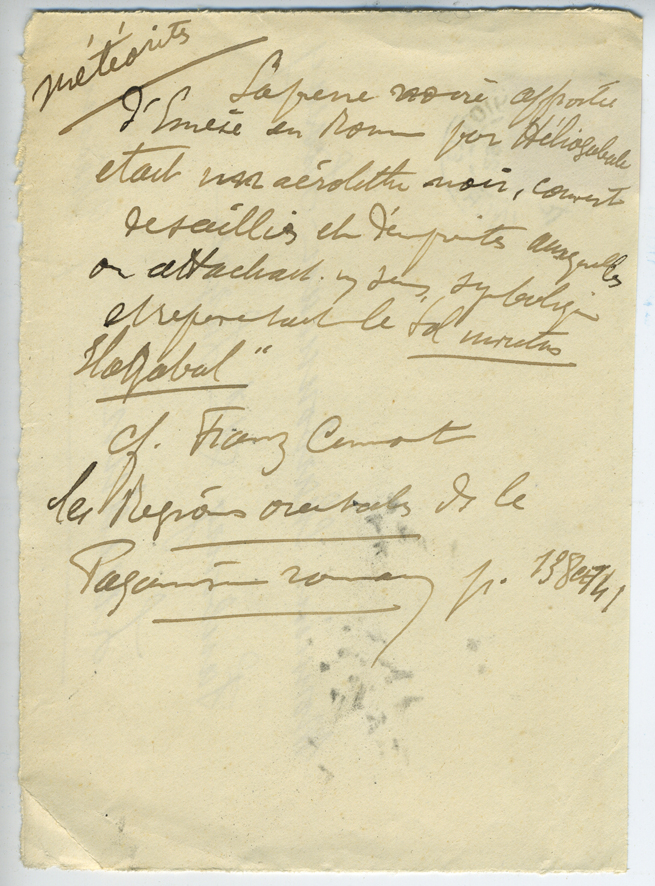 météorites
La pierre noire apportée
d'Emèse en Rome par Héliogabale
était un aérolithe noir, couvert
de saillies et d'empreintes auxquelles
on attachait un sens symbolique
et représentait le Sol invictus
Elagabal"
cf. Franz Cumont
les Religions orientales de le
Paganisme romain p. 138 et 141